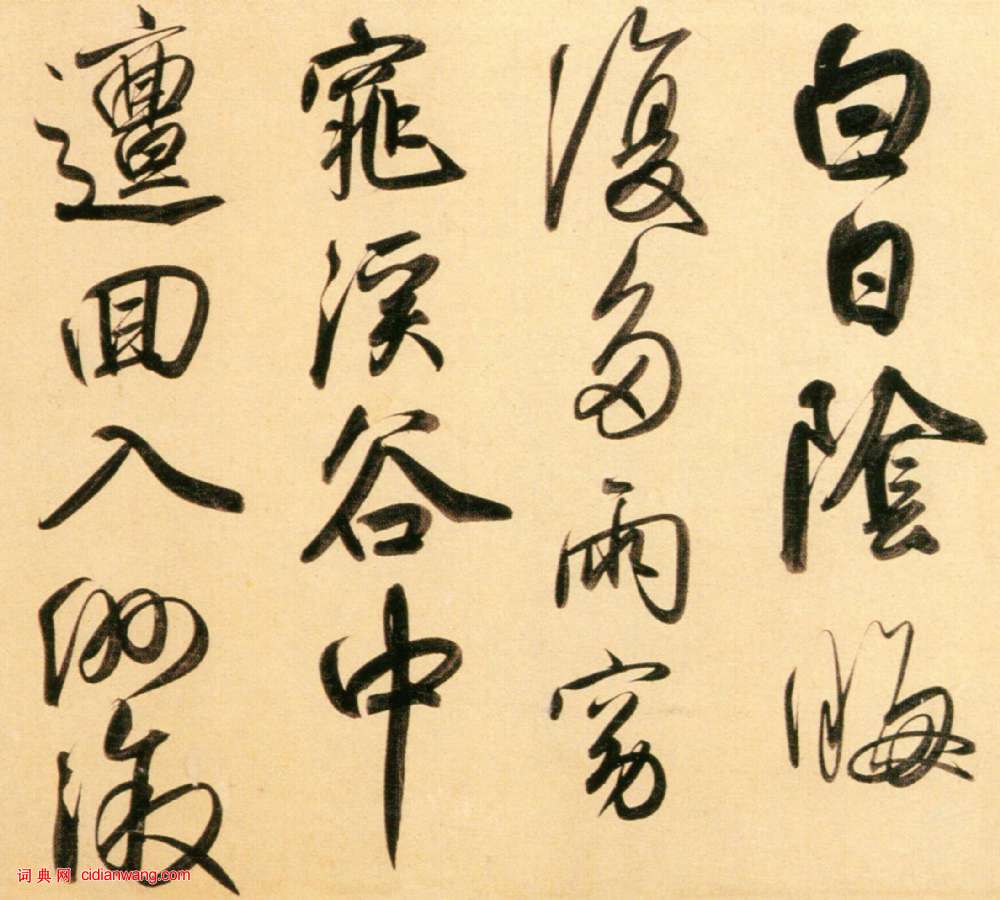 白日陰晦
復多雨窈
窕溪谷中
邅回入洲漵
词典网 cidianwang.com